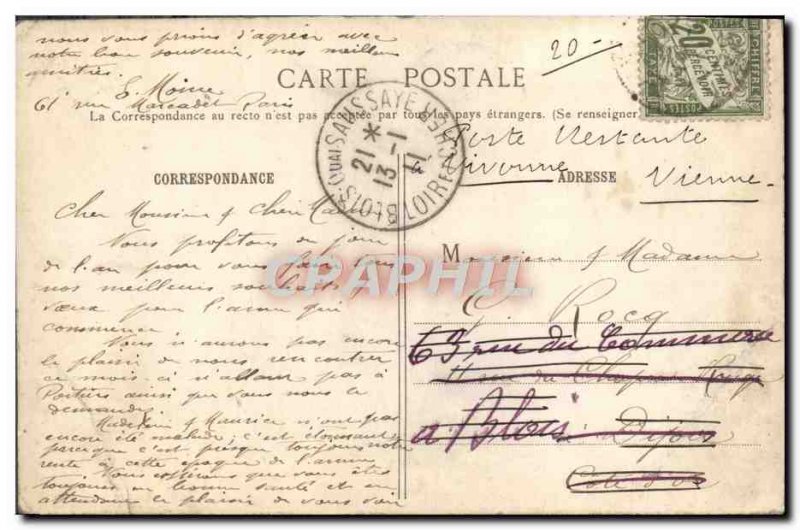 nous vous prions d'agréer avec
notre bon souvenir, nos meilleures
amitiés.
E. Moine
61 rue Marcadet Paris
CARTE POSTALE
La Correspondance au recto n'est pas acceptée par tous les pays étrangers. (Se renseigner
20 -
20 CENTIMES
A PERCEVOIR
CHIFFRE TAXE
POSTES
BLOIS (QUAI SAUSSAYE)
LOIR-&-CHER
21 *
13 - 1
11
Poste Restante
à Vivonne
Vienne -
CORRESPONDANCE
ADRESSE
Cher Monsieur & Chère
Nous profitons du jour
de l'an pour vous faire tous
nos meilleurs souhaits &
vœux pour l'année qui
commence
Nous n'aurons pas encore
le plaisir de nous rencontrer
ce mois ci n'allant pas à
Poitiers ainsi que vous nous le
demandez
Madeleine & Maurice n'ont pas
encore été malade, c'est étonnant
presque c'est presque toujours notre
rente à cette époque de l'année
Nous espérons que vous êtes
toujours en bonne santé et en
attendant le plaisir de vous voir
Monsieur & Madame
C. Rocq
63 rue du Commerce
11 rue du Chapeau Rouge
a Blois
Dijon
Côte d'Or
CPAPHIL